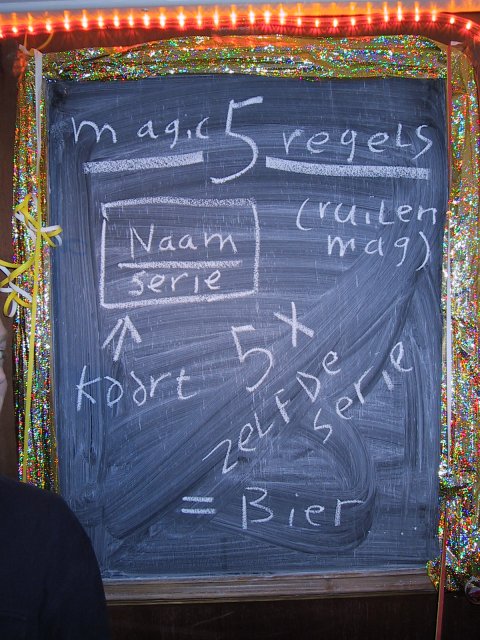 magic 5 regels
(ruilen
mag)
Naam
serie
kaart
5 x
zelfde
serie
= Bier